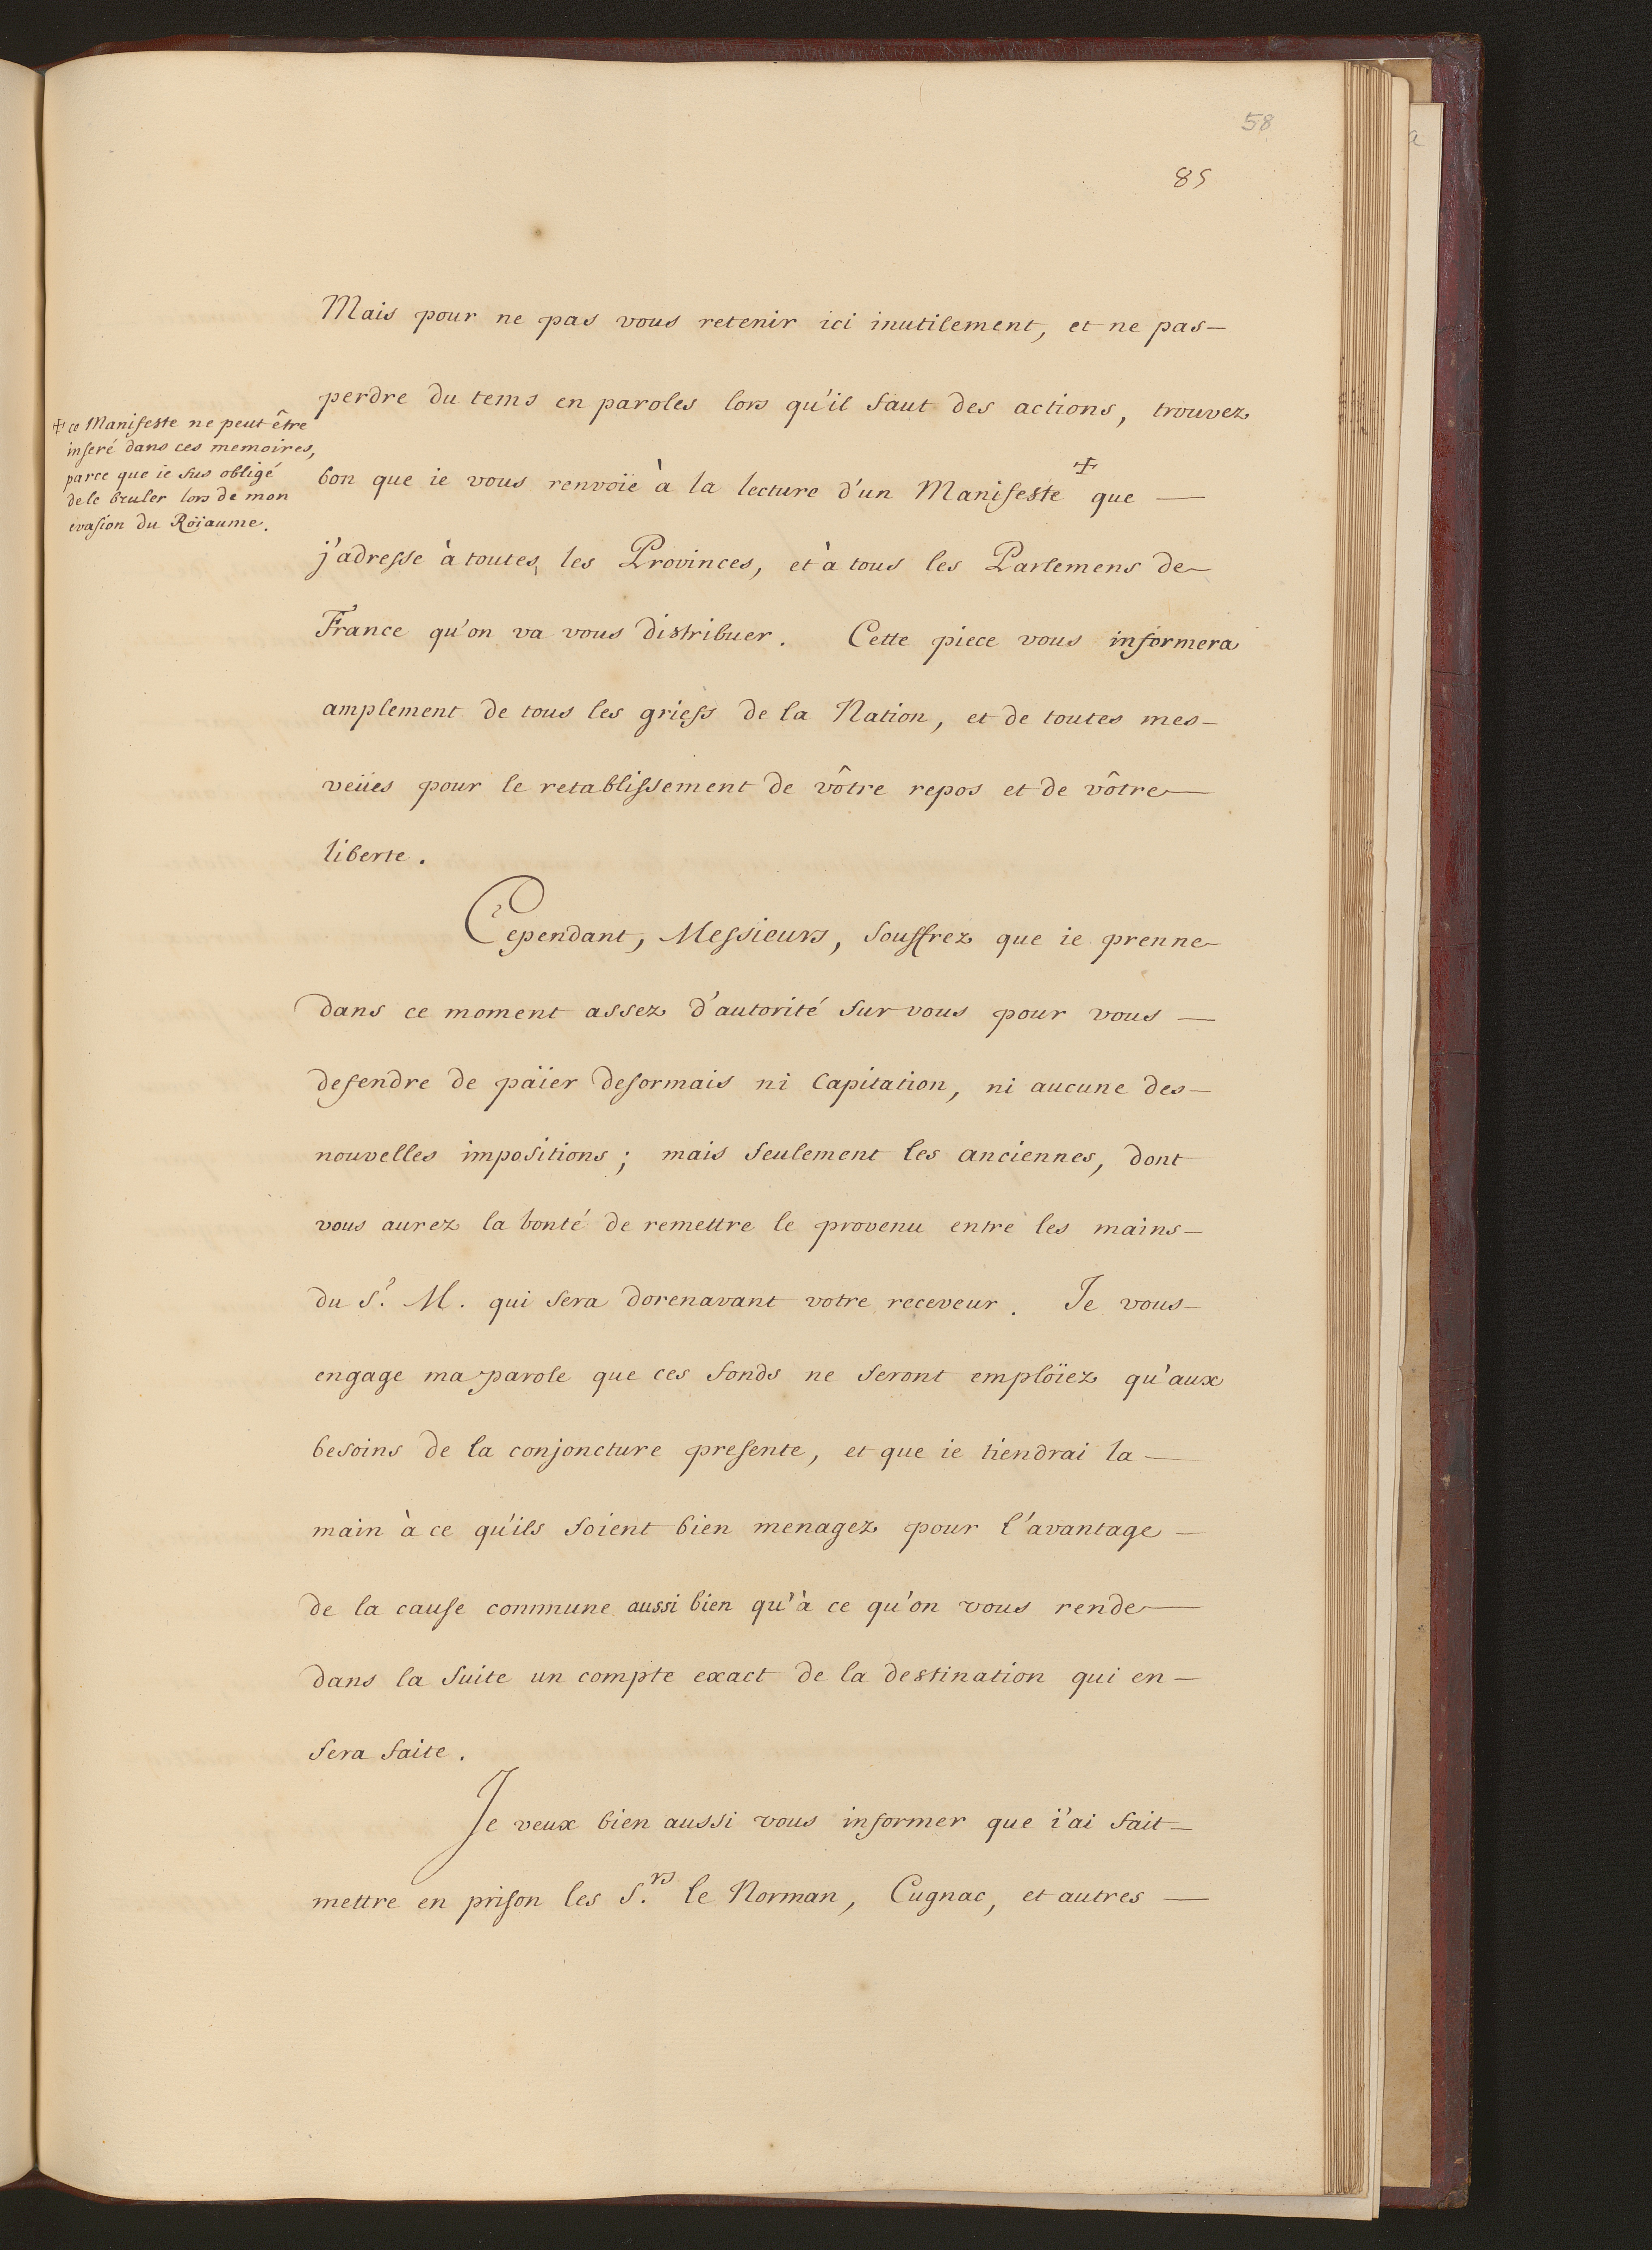 58
85
Mais pour ne pas vous retenir ici inutilement, et ne pas—
perdre du tems en paroles lors qu'il faut des actions, trouvez
bon que ie vous renvoïe à la lecture d'un Manifeste ☩ que —
j'adresse à toutes les Provinces, et à tous les Parlemens de—
France qu'on va vous distribuer. Cette piece vous informera
amplement de tous les griefs de la Nation, et de toutes mes—
veües pour le retablissement de vôtre repos et de vôtre—
liberte.
☩ ce Manifeste ne peut être
inseré dans ces memoires,
parce que ie fus obligé
de le bruler lors de mon
evasion du Roïaume.
Cependant, Messieurs, souffrez que ie prenne—
dans ce moment assez d'autorité sur vous pour vous —
defendre de païer desormais ni Capitation, ni aucune des—
nouvelles impositions; mais seulement les anciennes, dont
vous aurez la bonté de remettre le provenu entre les mains—
du S.r M. qui sera dorenavant votre receveur. Je vous—
engage ma parole que ces fonds ne seront emploïez qu'aux
besoins de la conjoncture presente, et que ie tiendrai la —
main à ce qu'ils soient bien menagez pour l'avantage —
de la cause commune aussi bien qu'à ce qu'on vous rende—
dans la suite un compte exact de la destination qui en—
sera faite.
Je veux bien aussi vous informer que i'ai fait—
mettre en prison les S.rs le Norman, Cugnac, et autres —